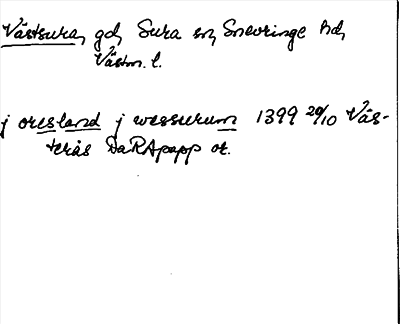 Västsura, gd, Sura sn, Snevringe hd,
Västm. l.
j oresland j wessurum 1399 20/10 Väs-
terås DaRApapp or.